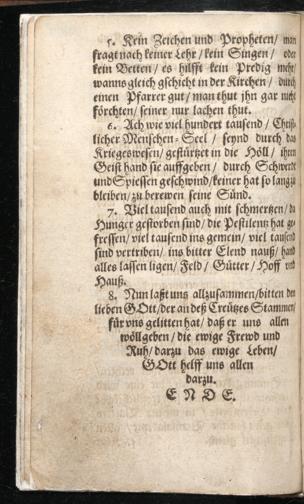 5. Kein Zeichen und Propheten/ man
fragt nach keiner Lehr/ kein Singen/ oder
kein Betten/ es hilfft kein Predig mehr/
wanns gleich gschicht in der Kirchen/ durch
einen Pfarrer gut/ man thut jhn gar nicht
förchten/ seiner nur lachen thut.
6. Ach wie viel hundert tausend/ Christ-
licher Menschen-Seel/ seynd durch das
Kriegeswesen/ gestürtzet in die Höll/ ihren
Geist hand sie auffgeben/ durch Schwerdt
und Spiessen geschwind/ keiner hat so lang zu
bleiben/ zu berewen seine Sünd.
7. Viel tausend auch mit schmertzen/ da
Hunger gestorben sind/ die Pestilentz hat ge-
fressen/ viel tausend ins gemein/ viel tausend
sind vertriben/ ins bitter Elend nauß/ hand
alles lassen ligen/ Feld/ Gütter/ Hoff und
Hauß.
8. Nun laßt uns allzusammen/ bitten den
lieben GOtt/ der an deß Creützes Stammen/
für uns gelitten hat/ daß er uns allen
wöll geben/ die ewige Frewd und
Ruh/ darzu das ewige Leben/
GOtt helff uns allen
darzu.
E N D E.